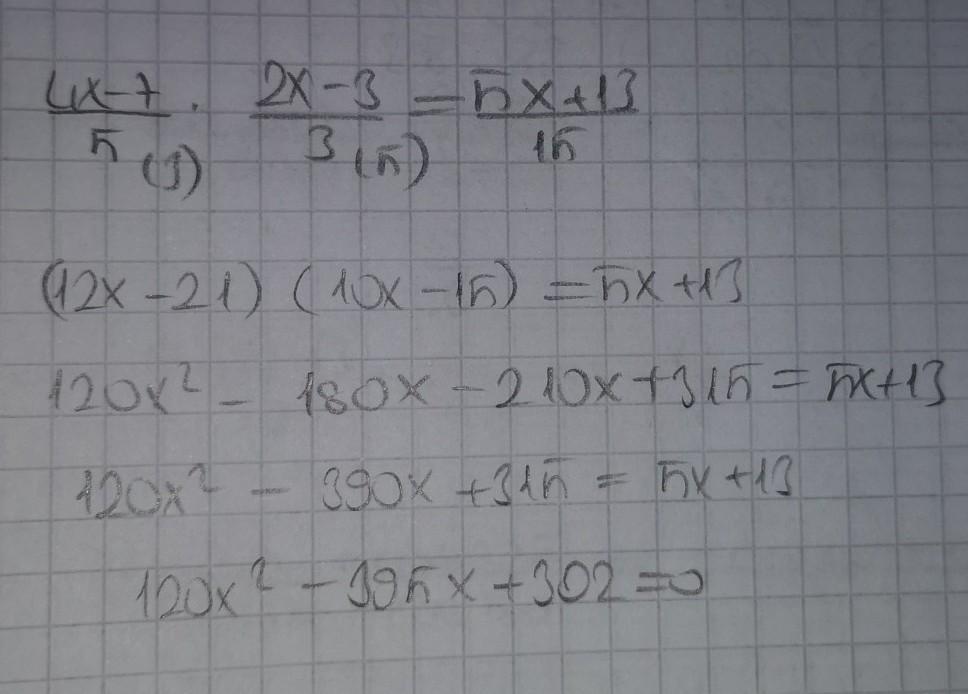 4x-7 . 2x-3 = 5x+13
5 (3) 3 (5) 15
(12x-21) (10x-15) = 5x+13
120x² - 180x - 210x + 315 = 5x+13
120x² - 390x + 315 = 5x+13
120x² - 395x + 302 = 0